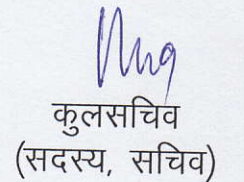 कुलसचिव
(सदस्य, सचिव)